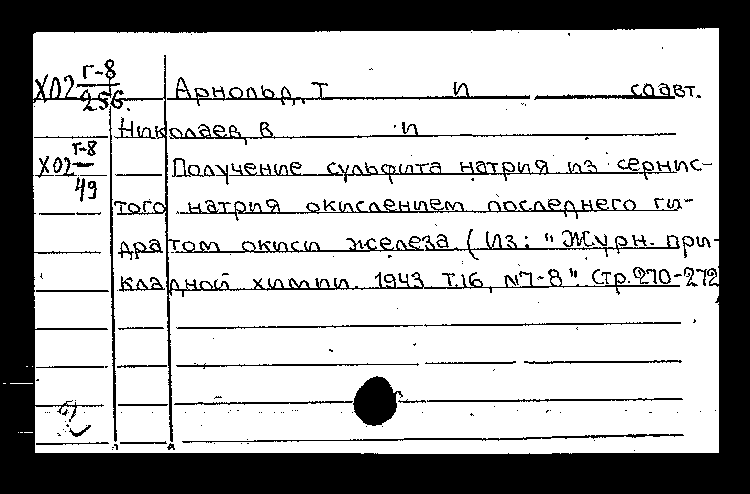 Х02 Г-8/256. Арнольд, Т и соавт.
Николаев, В и
Х02 Г-8/49 Получение сульфита натрия из сернис-
того натрия окислением последнего ги-
дратом окиси железа. (Из: "Журн. при-
кладной химии. 1943 Т.16, №7-8". Стр. 270-272
2